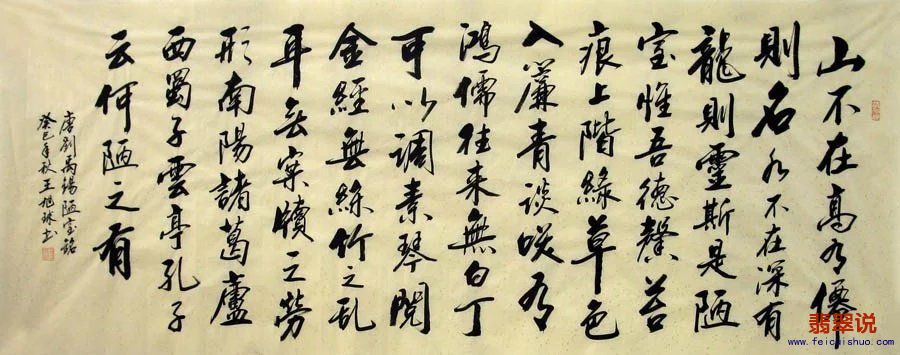 山不在高有僊
則名水不在深有
龍則靈斯是陋
室惟吾德馨苔
痕上階綠草色
入簾青談咲有
鴻儒往来無白丁
可以調素琴閱
金經無絲竹之乱
耳无案牘之勞
形南陽諸葛廬
西蜀子雲亭孔子
云何陋之有
唐刘禹錫陋室銘
癸巳年秋王旭球书
翡翠说
www.feicuishuo.com